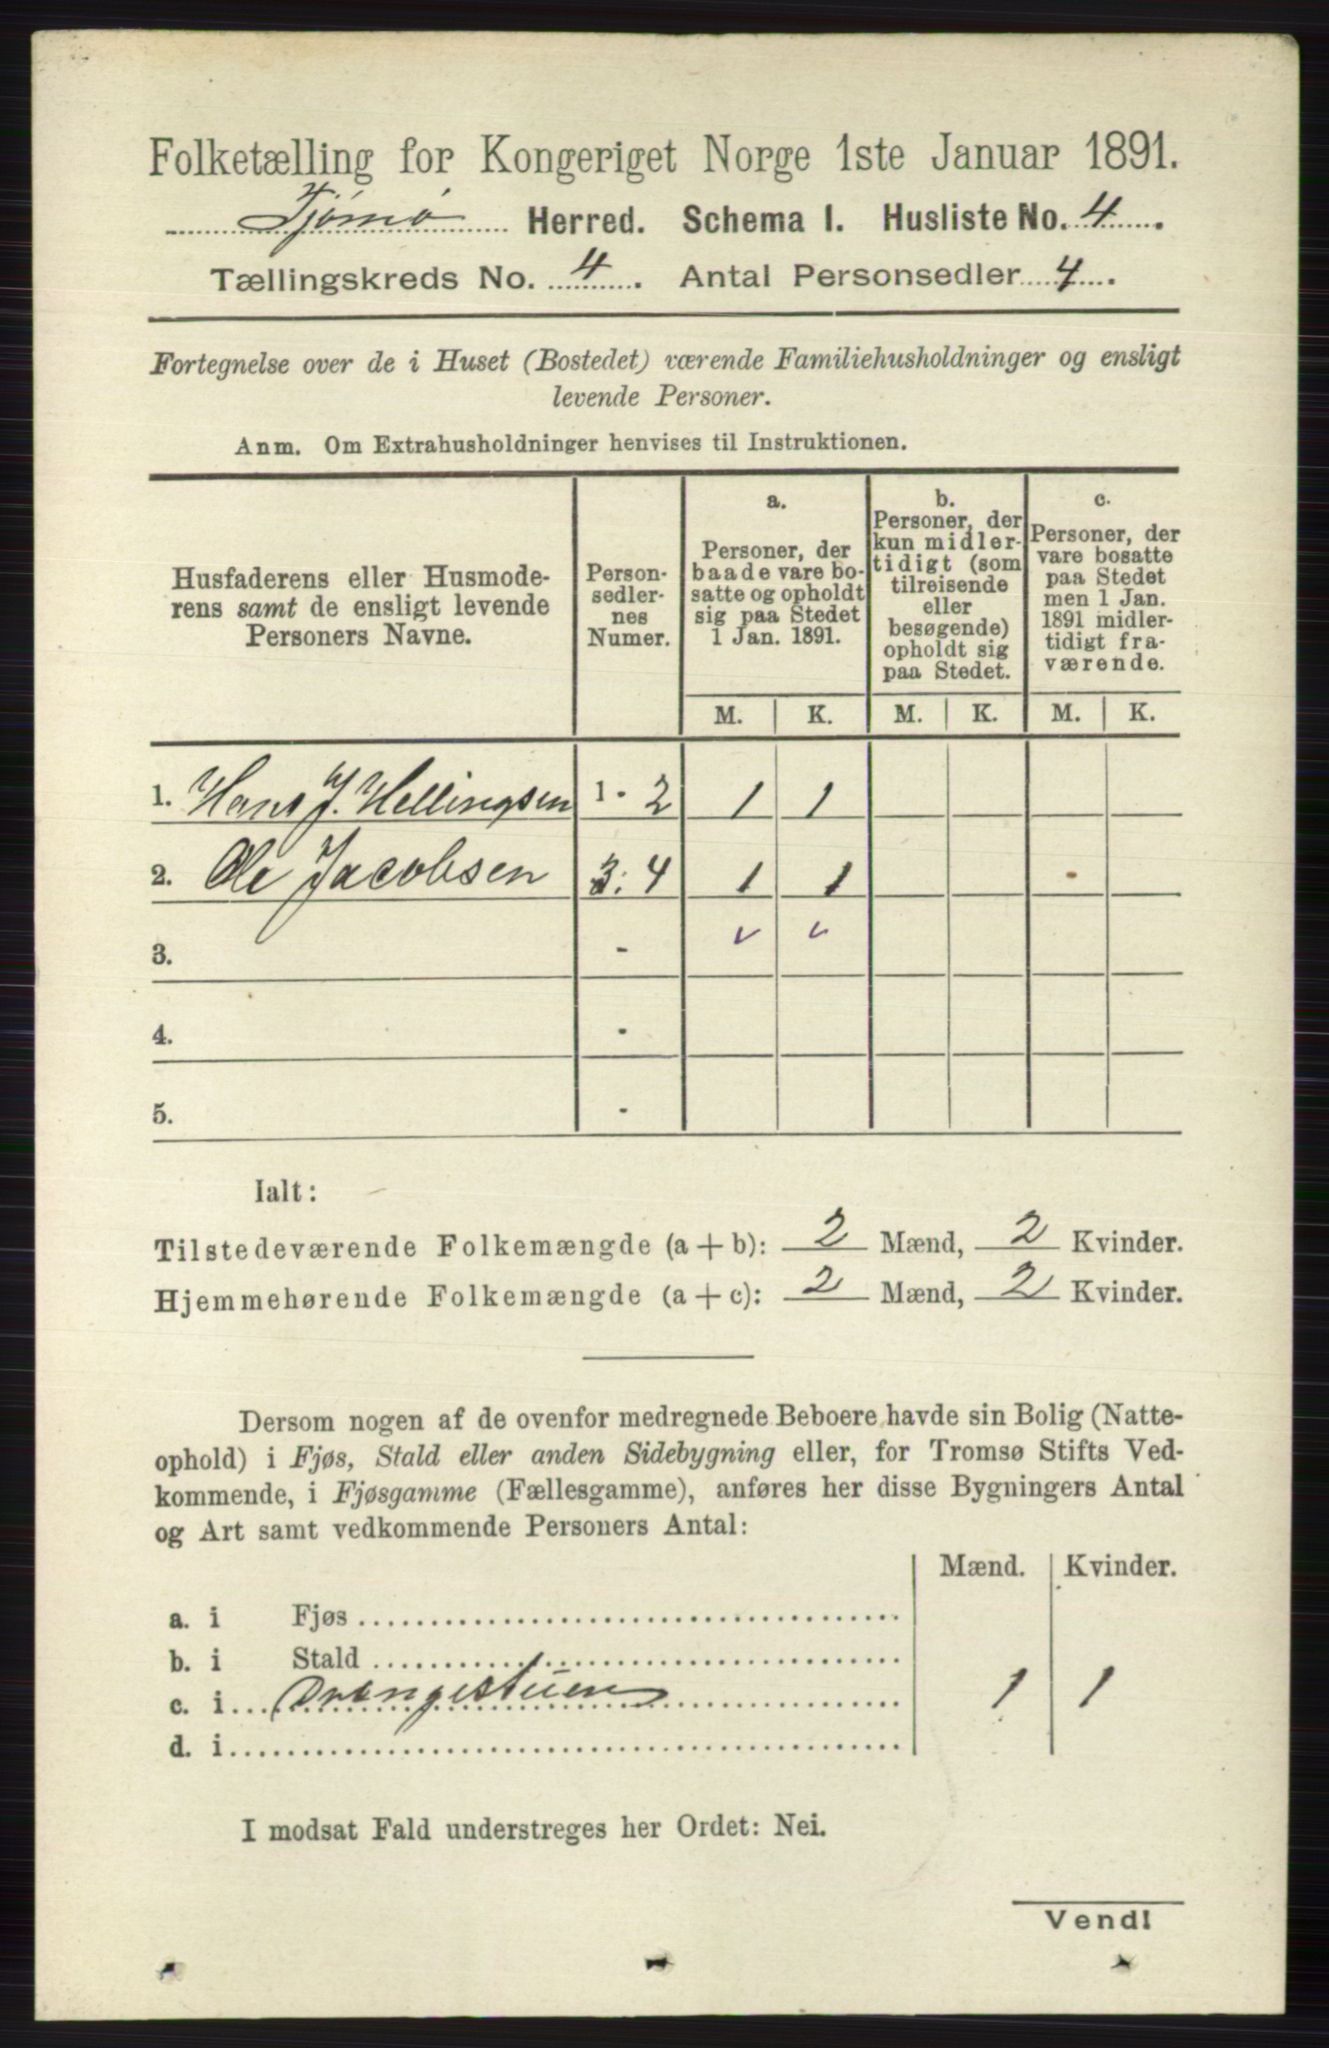 Folketælling for Kongeriget Norge 1ste Januar 1891.
Tjømø Herred. Schema I. Husliste No. 4.
Tællingskreds No. 4. Antal Personsedler 4.
Fortegnelse over de i Huset (Bostedet) værende Familiehusholdninger og ensligt
levende Personer.
Anm. Om Extrahusholdninger henvises til Instruktionen.
Husfaderens eller Husmode-
rens samt de ensligt levende
Personers Navne.
Person-
sedler-
nes
Numer.
a.
Personer, der
baade vare bo-
satte og opholdt
sig paa Stedet
1 Jan. 1891.
b.
Personer, der
kun midler-
tidigt (som
tilreisende
eller
besøgende)
opholdt sig
paa Stedet.
c.
Personer, der
vare bosatte
paa Stedet
men 1 Jan.
1891 midler-
tidigt fra-
værende.
M. K. M. K. M. K.
1. Hans J. Hellingsen 1 - 2 1 1
2. Ole Jacobsen 3 : 4 1 1
3. -
4. -
5. -
Ialt:
Tilstedeværende Folkemængde (a + b): 2 Mænd, 2 Kvinder.
Hjemmehørende Folkemængde (a + c): 2 Mænd, 2 Kvinder.
Dersom nogen af de ovenfor medregnede Beboere havde sin Bolig (Natte-
ophold) i Fjøs, Stald eller anden Sidebygning eller, for Tromsø Stifts Ved-
kommende, i Fjøsgamme (Fællesgamme), anføres her disse Bygningers Antal
og Art samt vedkommende Personers Antal:
Mænd. Kvinder.
a. i Fjøs
b. i Stald
c. i Drengestuen 1 1
d. i
I modsat Fald understreges her Ordet: Nei.
Vend!